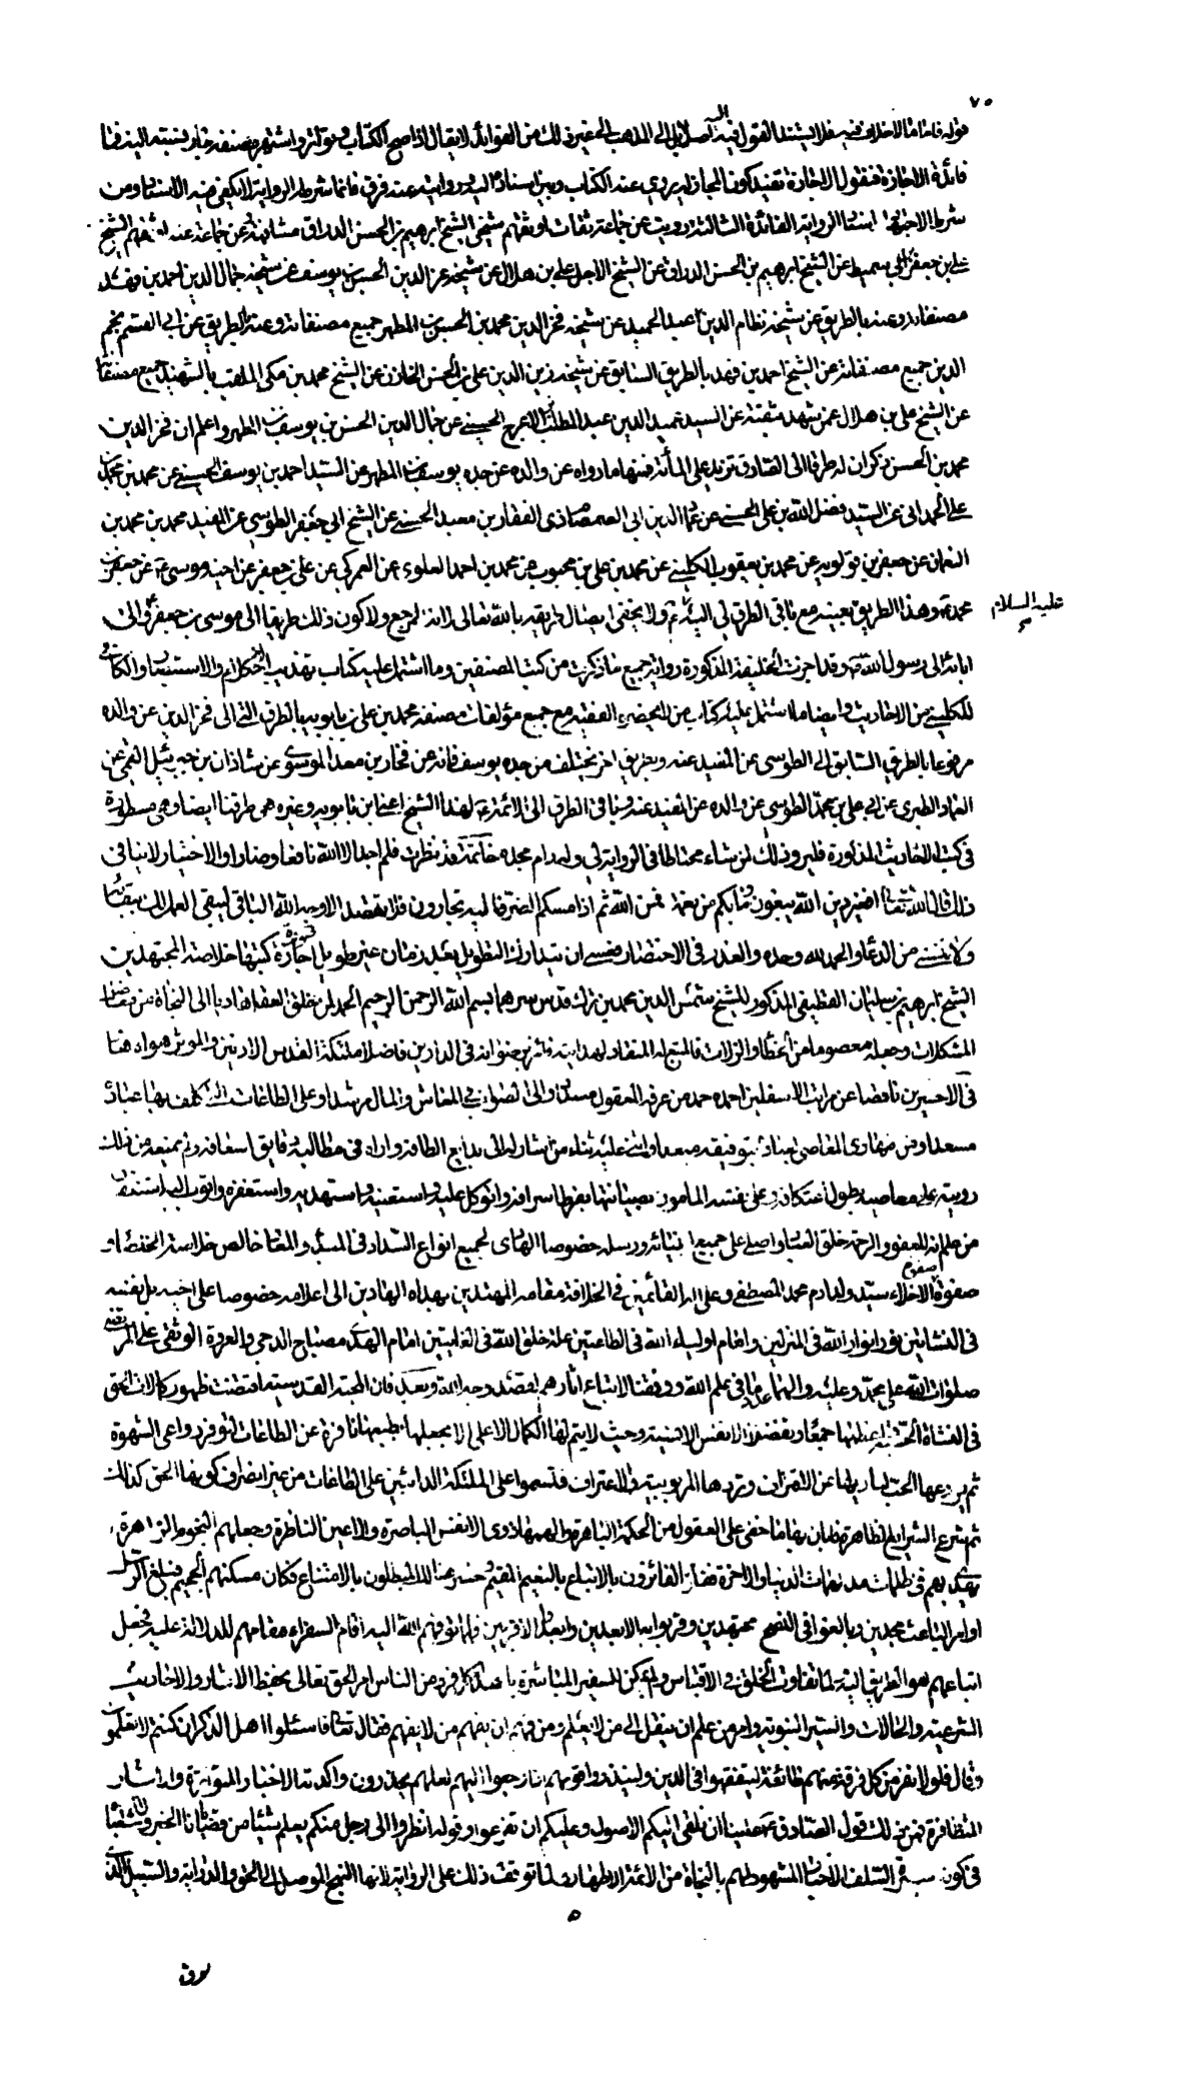 ٧٥
قوله فاما ما لا خلاف فيه فلا يستند القول فيه الى اصل بل الى المذهب الى غير ذلك من الفوائد لا يقال اذا صح الكتاب وتواتر واشتهر مصنفه جاز نسبته اليه فما
فائدة الاجازة فنقول الاجازة تفيد كون المجاز له يروى عنه الكتاب وبين اسناد الكتاب اليه وروايته عنه فرق فانما شرطه الرواية لا يكفى فيه الاسناد ومن
شرط الاجتهاد اتصال الرواية الفائدة الثالثة رويت عن جماعة ثقات اوثقهم شيخى الشيخ ابرهيم بن الحسن الدراق مشافهة عن جماعة عنه اشهرهم الشيخ
على بن جعفر بن ابى سميط عن الشيخ ابرهيم بن الحسن الدراق عن الشيخ الاجل على بن هلال عن شيخه عز الدين الحسن بن يوسف عن شيخه جمال الدين احمد بن فهد
مصنفاته وعنه بالطريق عن شيخه نظام الدين عبد الحميد عن شيخه فخر الدين محمد بن الحسن بن المطهر جميع مصنفاته وعنه بالطريق عن ابى القسم نجم
الدين جميع مصنفاته عن الشيخ احمد بن فهد بالطريق السابق عن شيخه زين الدين على بن الحسن الخازن عن الشيخ محمد بن مكى الملقب بالشهيد جميع مصنفاته
عن الشيخ على بن هلال عمن شهد بثقته عن السيد عميد الدين عبد المطلب بن الاعرج الحسينى عن جمال الدين الحسن بن يوسف بن المطهر واعلم ان فخر الدين
محمد بن الحسن ذكر ان له طرقا الى الصادق تزيد على المأة فمنها ما رواه عن والده عن جده يوسف بن المطهر عن السيد احمد بن يوسف الحسينى عن محمد بن محمد بن
على الحمدانى عن السيد فضل الله بن على الحسنى عن عماد الدين ابى الصمصام ذى الفقار بن معبد الحسنى عن الشيخ ابى جعفر الطوسى عن المفيد محمد بن محمد بن
النعمان عن جعفر بن قولويه عن محمد بن يعقوب الكلينى عن محمد بن على بن محبوب عن محمد بن احمد العلوى عن العمركى عن على بن جعفر عن اخيه موسى عن جعفر بن
محمد وهذا الطريق بعينه مع باقى الطرق لى اليه ولا يخفى ايصال طريقه بالله تعالى لانه المرجع ولا كون ذلك طريقا الى موسى بن جعفر والى
عليه السلام
ابائه الى رسول الله ص وقد اجزت للخليفة المذكورة رواية جميع ما ذكرت من كتب المصنفين وما اشتمل عليه كتاب تهذيب الاحكام والاستبصار والكافى
للكلينى من الاحاديث وايضا ما اشتمل عليه كتاب من لا يحضره الفقيه مع جميع مؤلفات مصنفه محمد بن على بن بابويه بالطرق التى الى فخر الدين عن والده
مرفوعا بالطرق السابق الى الطوسى عن المفيد عنه وبطريق اخر يختلف من جده يوسف فانه عن فخار بن معد الموسوى عن شاذان بن جبرئيل القمى عن
العماد الطبرى عن ابى على بن محمد الطوسى عن والده عن المفيد عنه وباقى الطرق الى الائمة لهذا الشيخ اعنى ابن بابويه وغيره هى طرقنا ايضا وهى مسطورة
فى كتب الاحاديث المذكورة فليرو ذلك لمن شاء محتاطا فى الرواية لى وله دام مجده خاتمة قد نظرت فلم اجد الا الله نافعا وضارا والاختيار لا ينافى
ذلك قال الله تعالى افغير دين الله يبغون وما بكم من نعمة فمن الله ثم اذا مسكم الضر فاليه تجأرون فلا يقصد الا وجه الله الباقى ليبقى العمل لك ببقائه
ولا تنسنى من الدعاء والحمد لله وحده والعذر فى الاختصار فعسى ان نتدارك التطويل بعد زمان غير طويل اجازة كتبها خلاصة المجتهدين
الشيخ ابرهيم بن سليمان القطيفى المذكور للشيخ شمس الدين محمد بن ترك قدس سرهما بسم الله الرحمن الرحيم الحمد لمن خلق العقل هاديا الى النجاة
المشكلات وجعله معصوما من الخطأ والزلات فالمتبع له المنقاد لهداية فائز برضوانه فى الدارين فاضلا ملئكة القدس الاذنين والموثر هواه هنا
فى الاخسرين ناقصا عن مراتب الاسفلين احمده حمد من عرف العقول مسلكا والى الصواب فى المعاش والمآل مرشدا وعلى الطاعات التى كلف بها عباده
مسعدا وعن مهاوى المعاصى لعباده بتوفيقه مبعدا واثنى عليه ثناء من اشار له الى بدايع الطافه واراه فى مطالبه دقايق اسعافه ولم يمنعه من ذلك
رويته على معاصيه وطول اعتكافه وعلى نفسه المامور بصيانتها بفرط اسرافه واتوكل عليه واستعينه واستهديه واستغفره واتوب اليه
من ظلمانه للعفو والرحمة خلق العباد واصلى على جميع انبيائه ورسله خصوصا الهادى لجميع انواع السداد فى المبدء والمعاد خالص خلاصة
صفوة الاخلاء سيد ولد ادم محمد المصطفى وعلى اله القائمين فى الخلافة مقامه المهتدين بهداه الهادين الى اعلامه خصوصا على اخيه بل نفسه
صفوة
فى النشاتين نور انوار الله فى المنزلين وامام اولياء الله فى الطاعتين علة خلق الله فى الغايتين امام الهدى مصباح الدجى والعروة الوثقى على المرتضى
صلوات الله على محمد وعليه والهما عدد ما فى علم الله ووفقنا لاتباع اثارهم لقصد وجه الله وبعد فان المحبة القدسية اقتضت ظهور كمالات الحق
فى النشاة الحقية جميعا وتقضت الانفس الانسية وحيث لا يتم لها الكمال الاعلى الا بجعلها بطبعها نافرة عن الطاعات لتوفر دواعى الشهوة
ثم يردعها الحب لباريها عن الاقتران وتردها المربوبية والاعتراف فتسمو على الملئكة الدائبين على الطاعات من غير انصراف كونها الحق كذلك
ثم شرع الشرايع لظاهر فابان بها ما خفى على العقول من الحكمة الباهرة والهمها ذوى الانفس الباصرة والاعين الناظرة وجعلهم النجوم الزاهرة
يهتدى بهم فى ظلمات مدلهمات الدنيا والاخرة ففاز الفائزون بالاتباع بالنعيم المقيم وخسر هنالك المبطلون بالامتناع فكان مسكنهم الجحيم فبلغ الرسل
اوامر الباعث مجدين وبالغوا فى النصح مجتهدين وقربوا به الابعدين وابعدوا الاقربين ولما توفيهم الله اليه اقام السفراء مقامهم للدلالة عليه فجعل
اتباعهم هو الطريق اليه ولما تفاوت الخلق فى الاقتباس ولم يمكن للسفير المباشرة باعداد كل فرد من الناس امر الحق تعالى بحفظ الاثار والاحاديث
الشرعية والحالات والسير النبوية وامر من علم ان ينقل الى من لا يعلم ومن فهم ان يفهم من لا يفهم فقال تعالى فاسئلوا اهل الذكر ان كنتم لا تعلمون
وقال فلولا نفر من كل فرقة منهم طائفة ليتفقهوا فى الدين ولينذروا قومهم اذا رجعوا اليهم لعلهم يحذرون واكدته الاخبار المتواترة والاثار
المتظافرة فمن ذلك قول الصادق علينا ان نلقى اليكم الاصول وعليكم ان تفرعوا وقوله انظروا الى رجل منكم يعلم شيئا من قضايانا الخبر ولا شك
فى كون سيرة السلف الاخيار المشهود لهم بالنجاة من الائمة الاطهار ولما توقف ذلك على الرواية لانها النهج الموصل الى الحق والدراية والسبيل الذى